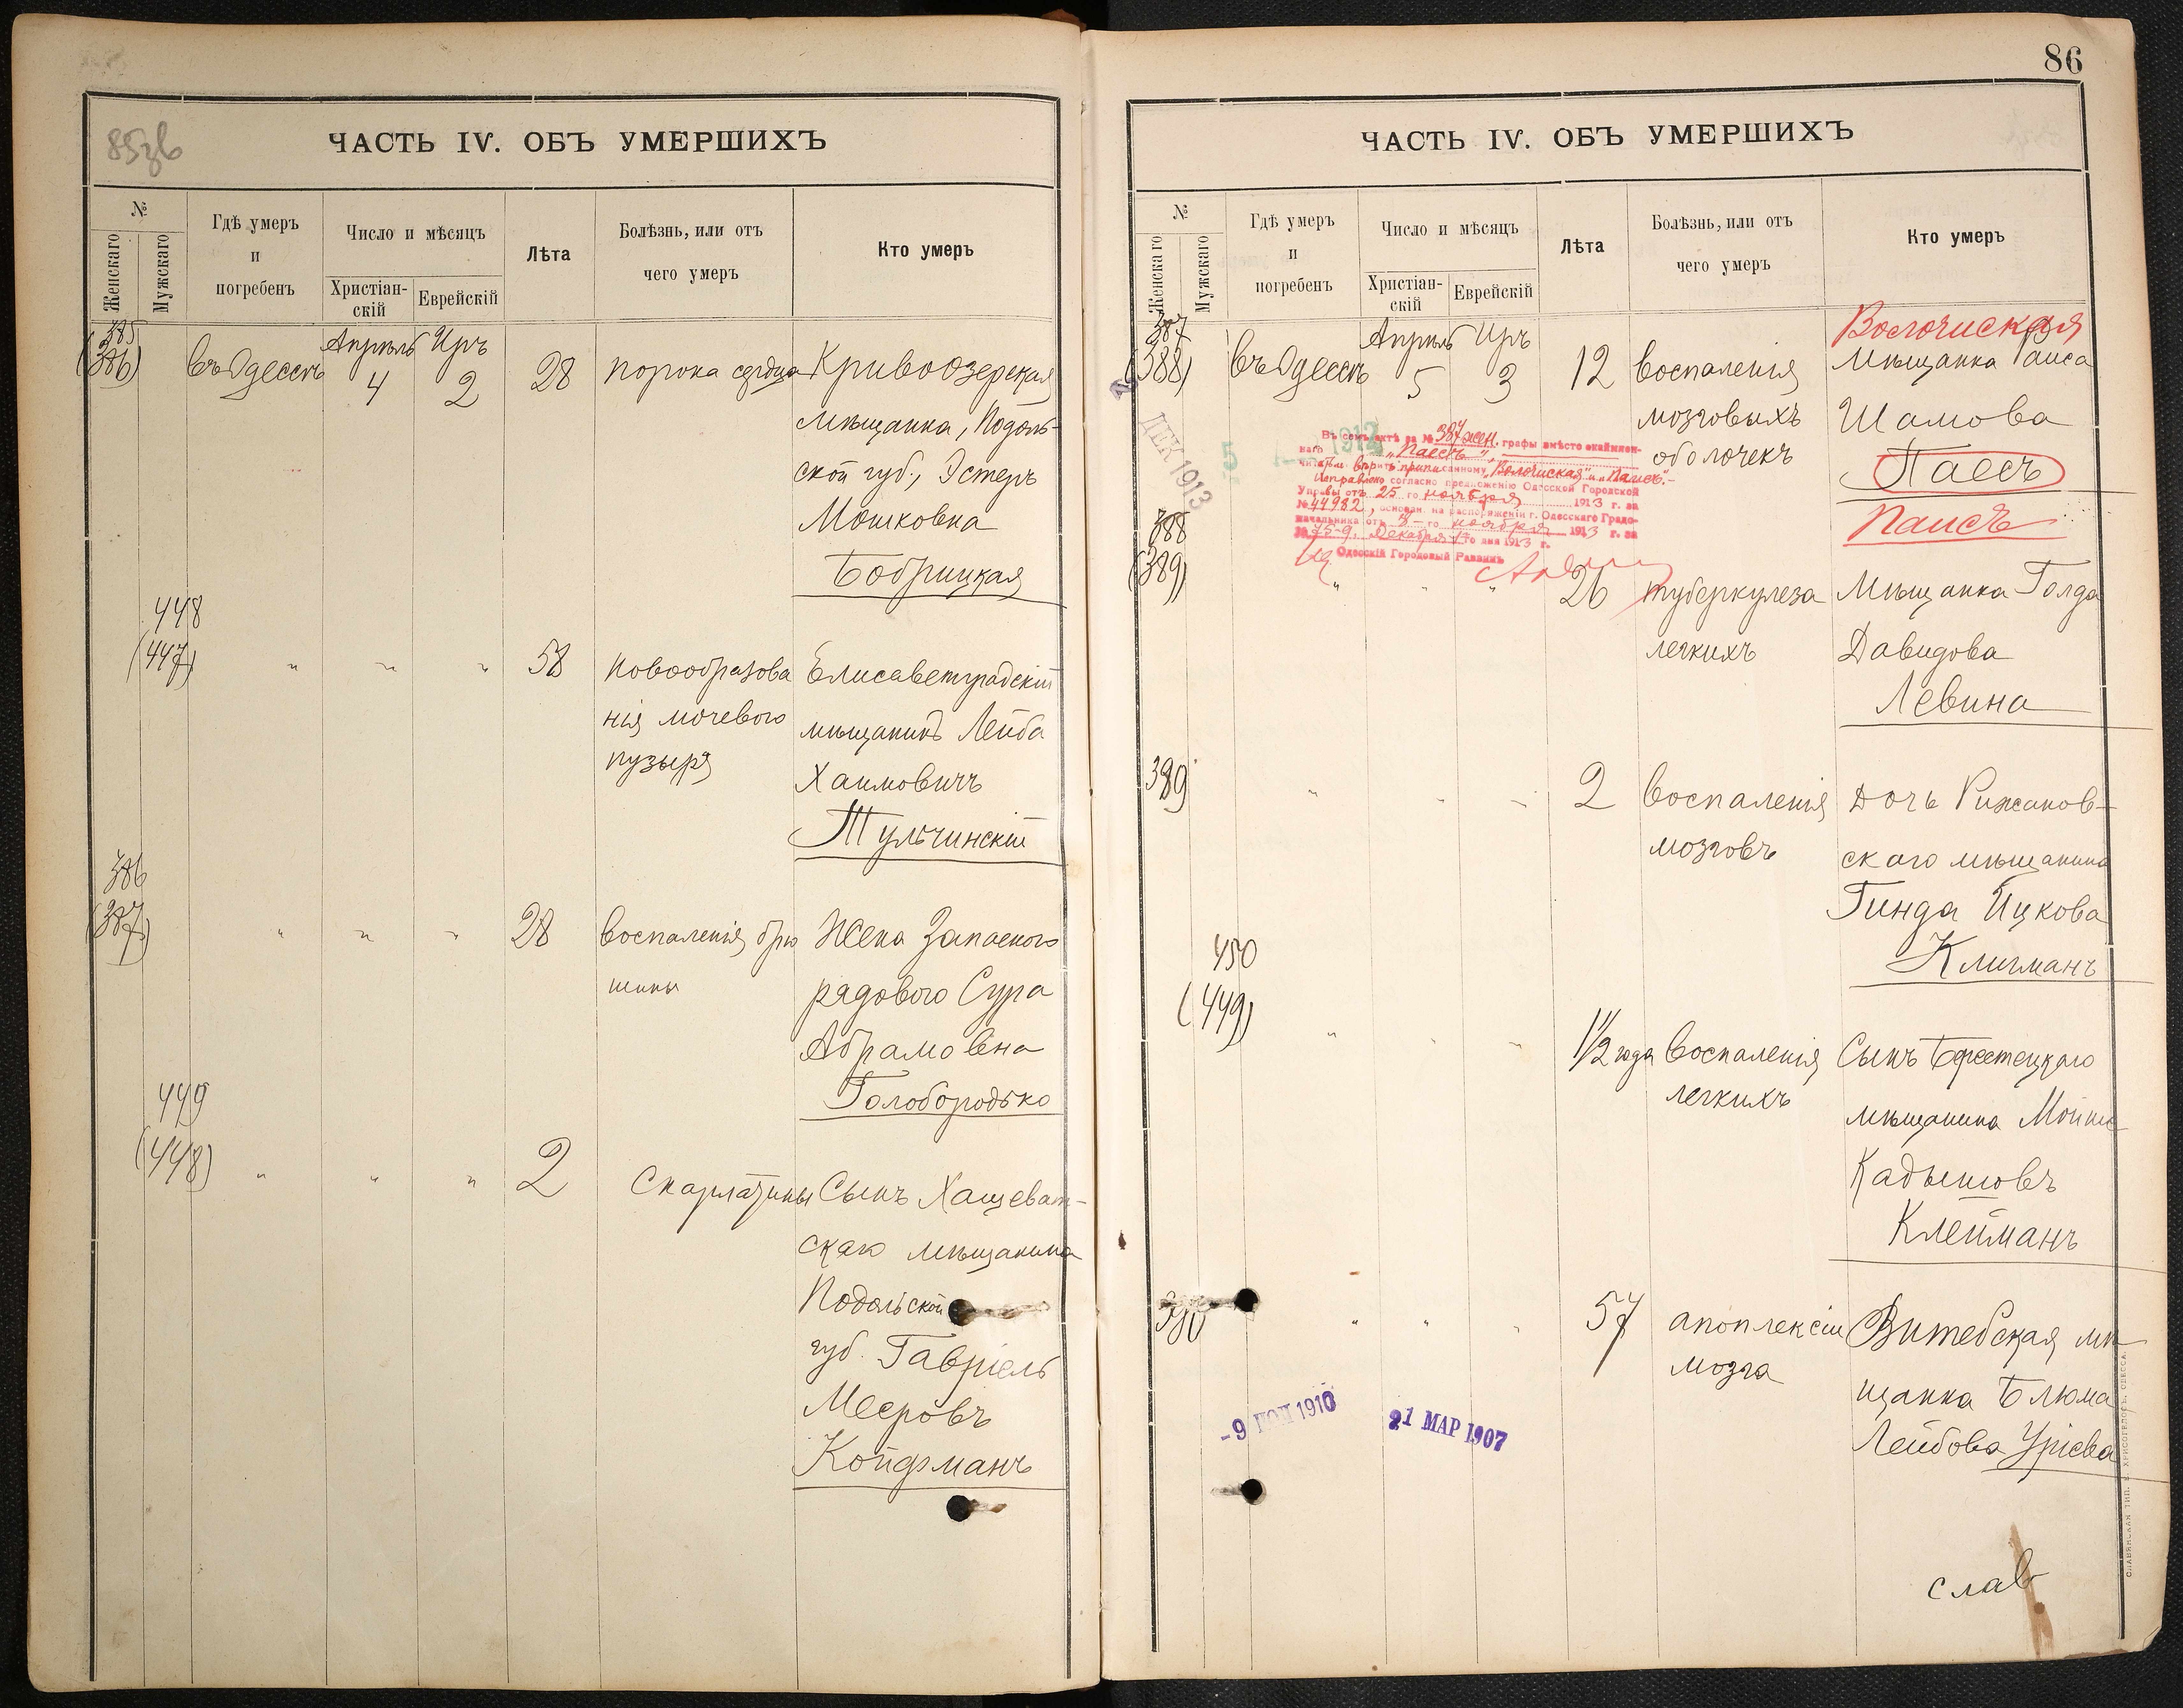 85зв
ЧАСТЬ IV. ОБЪ УМЕРШИХЪ
№
Женскаго
Мужскаго
Гдѣ умеръ
и
погребенъ
Число и мѣсяцъ
Христіан-
скій
Еврейскій
Лѣта
Болѣзнь, или отъ
чего умеръ
Кто умеръ
385
(386)
Въ Одессѣ
Апрѣль Иръ
4 2
28
порока сердца
Кривоозерская
мѣщанка, Подоль-
ской губ., Эстеръ
Мошковна
Бобрицкая
448
(447)
" " "
58
Новообразова
нія мочевого
пузыря
Елисаветградскій
мѣщанинъ Лейба
Хаимовичъ
Тульчинскій
386
(387)
" " "
28
воспаленія брю
шины
Жена Запасного
рядового Сура
Абрамовна
Голобородько
449
(448)
" " "
2
Скарлатины
Сынъ Хащеват-
скаго мѣщанина
Подольской
губ. Гавріель
Мееровъ
Койфманъ
86
ЧАСТЬ IV. ОБЪ УМЕРШИХЪ
№
Женскаго
Мужскаго
Гдѣ умеръ
и
погребенъ
Число и мѣсяцъ
Христіан-
скій
Еврейскій
Лѣта
Болѣзнь, или отъ
чего умеръ
Кто умеръ
387
(388)
Въ Одессѣ
Апрѣль Иръ
5 3
12
воспаленія
мозговыхъ
оболочекъ
Волочиская
мѣщанка Раиса
Шамова
Паесъ
Паисъ
ДЕК 1913
5 1912
Въ семъ актѣ за № 387 жен. графы вмѣсто окаймлен-
наго "Паесъ",
читать вѣрить приписанному "Волочиская" и "Паисъ".-
Исправлено согласно предложенію Одесской Городской
Управы отъ 25 го ноября 1913 г. за
№ 44982, основан. на распоряженіи г. Одесскаго Градо-
начальника отъ го ноября 1913 г. за
Декабря го дня 1913 г.
Одесскій Городовый Раввинъ
388
(389)
" " "
26
туберкулеза
легкихъ
Мѣщанка Голда
Давидова
Левина
389
" " "
2
воспаленія
мозговъ
Дочь Рижанов-
скаго мѣщанина
Гинда Ицкова
Клигманъ
450
(449)
" " "
1 1/2 года
Воспаленія
легкихъ
Сынъ Берестецкаго
мѣщанина
Кадышовъ
Клейманъ
390
" " "
57
апоплексіи
мозга
Витебская мѣ
щанка Блюма
Лейбова Уріева
-9 1910
21 МАР 1907
слав